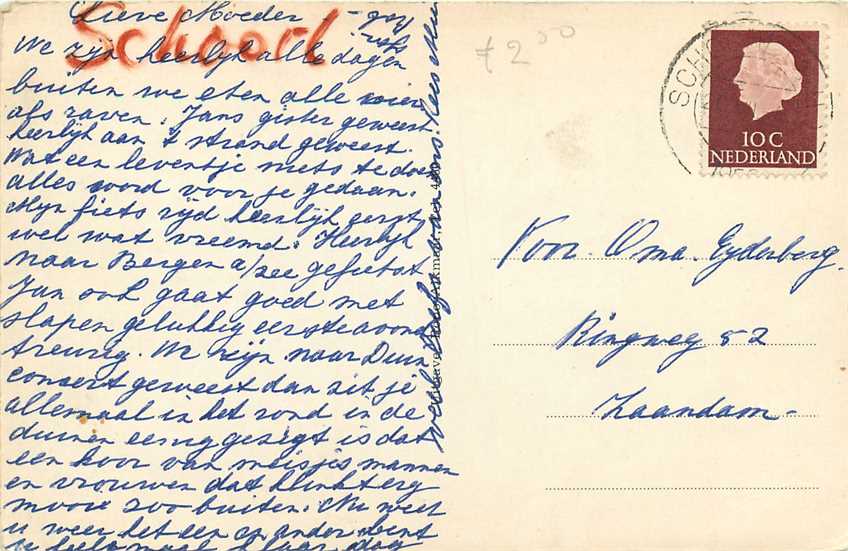 Lieve Moeder -
Schoorl
We zijn heerlijk alle dagen
buiten we eten alle
als raven. Jans gister geweest
heerlijk aan t strand geweest.
Wat een leventje niets te doen
alles word voor je gedaan.
Mijn fiets rijd heerlijk eerst
wel wat vreemd. Heerlijk
naar Bergen a/zee gefietst
Jan ook gaat goed met
slapen gelukkig eerste avond
treurig. We zijn naar Duin
consert geweest dan zit je
allemaal in het rond in de
duinen eenig gezigt is dat
een koor van meisjes mannen
en vrouwen dat klinkt erg
mooi zoo buiten. Nu weet
u weer het een en ander bent
u helemaal klaar dag
f 2 50
SCH
10 C
NEDERLAND
Voor. Oma. Eyderberg.
Ringweg 82
Zaandam-